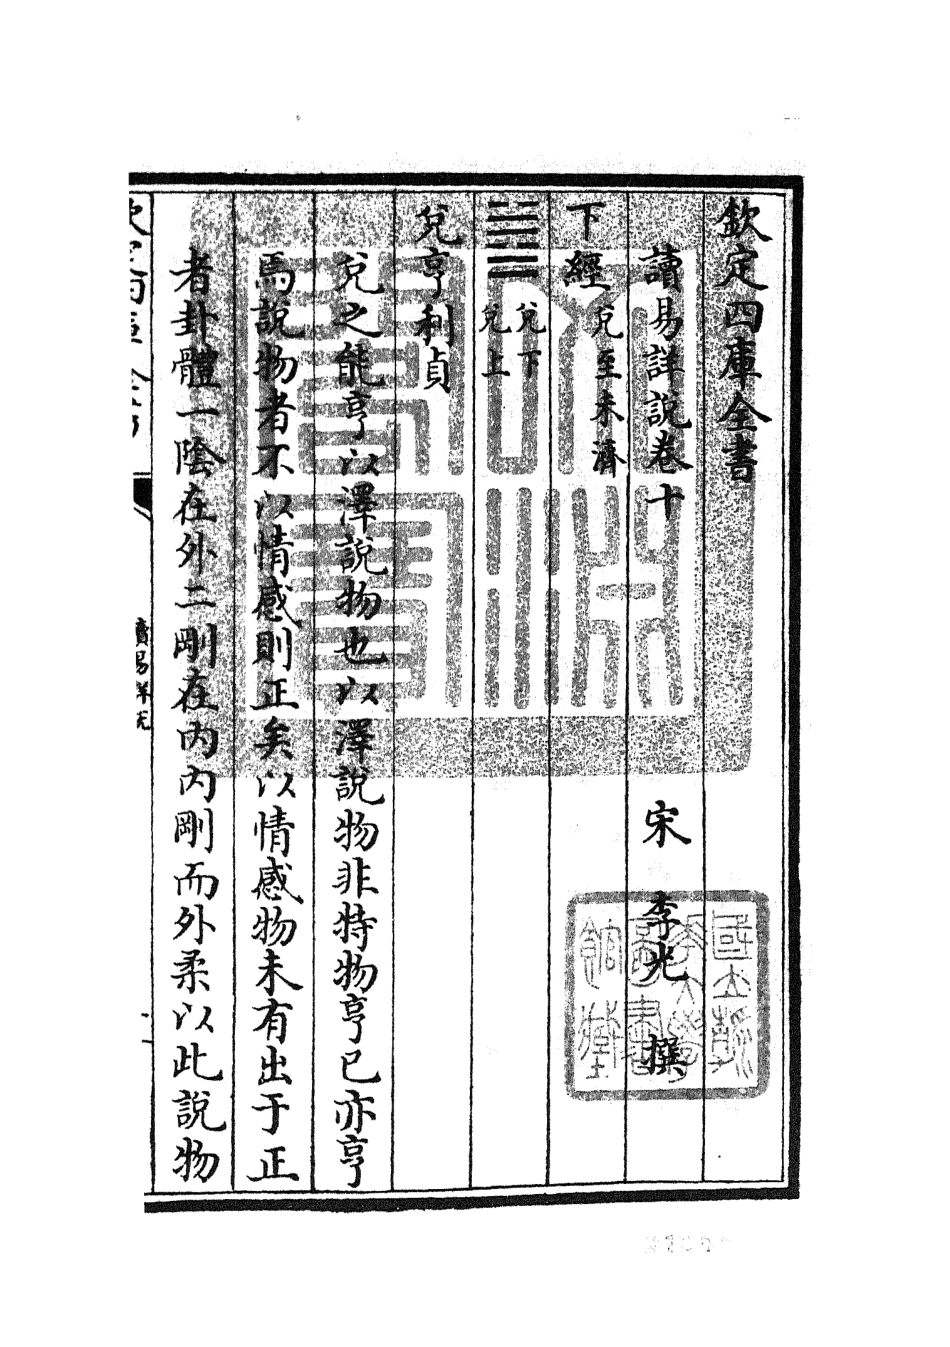 欽定四庫全書
讀易詳說卷十
宋 李光 撰
下經 兌至未濟
䷹ 兌下
兌上
兌亨利貞
兌之能亨以澤說物也以澤說物非特物亨已亦亨
焉說物者不以情感則正矣以情感物未有出于正
者卦體一陰在外二剛在內內剛而外柔以此說物
讀易詳說